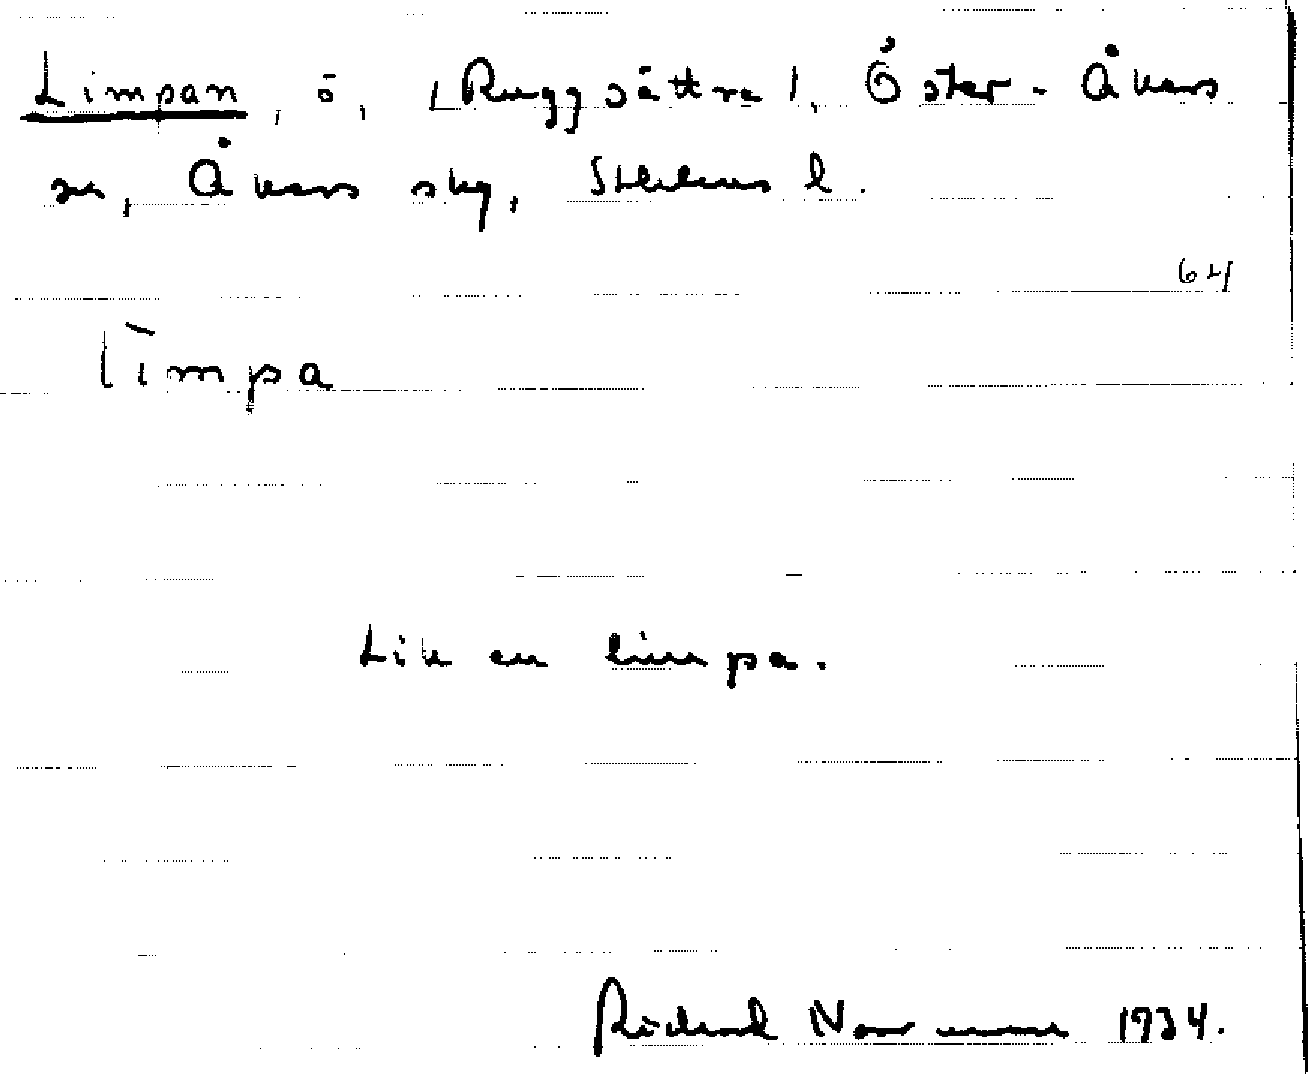 Limpan, ö, (Ruggsättra), Öster-Åkers
sn, Åkers skg, Sthlms l.
64
lìmpa
Lik en limpa.
Rickard Norrman 1934.